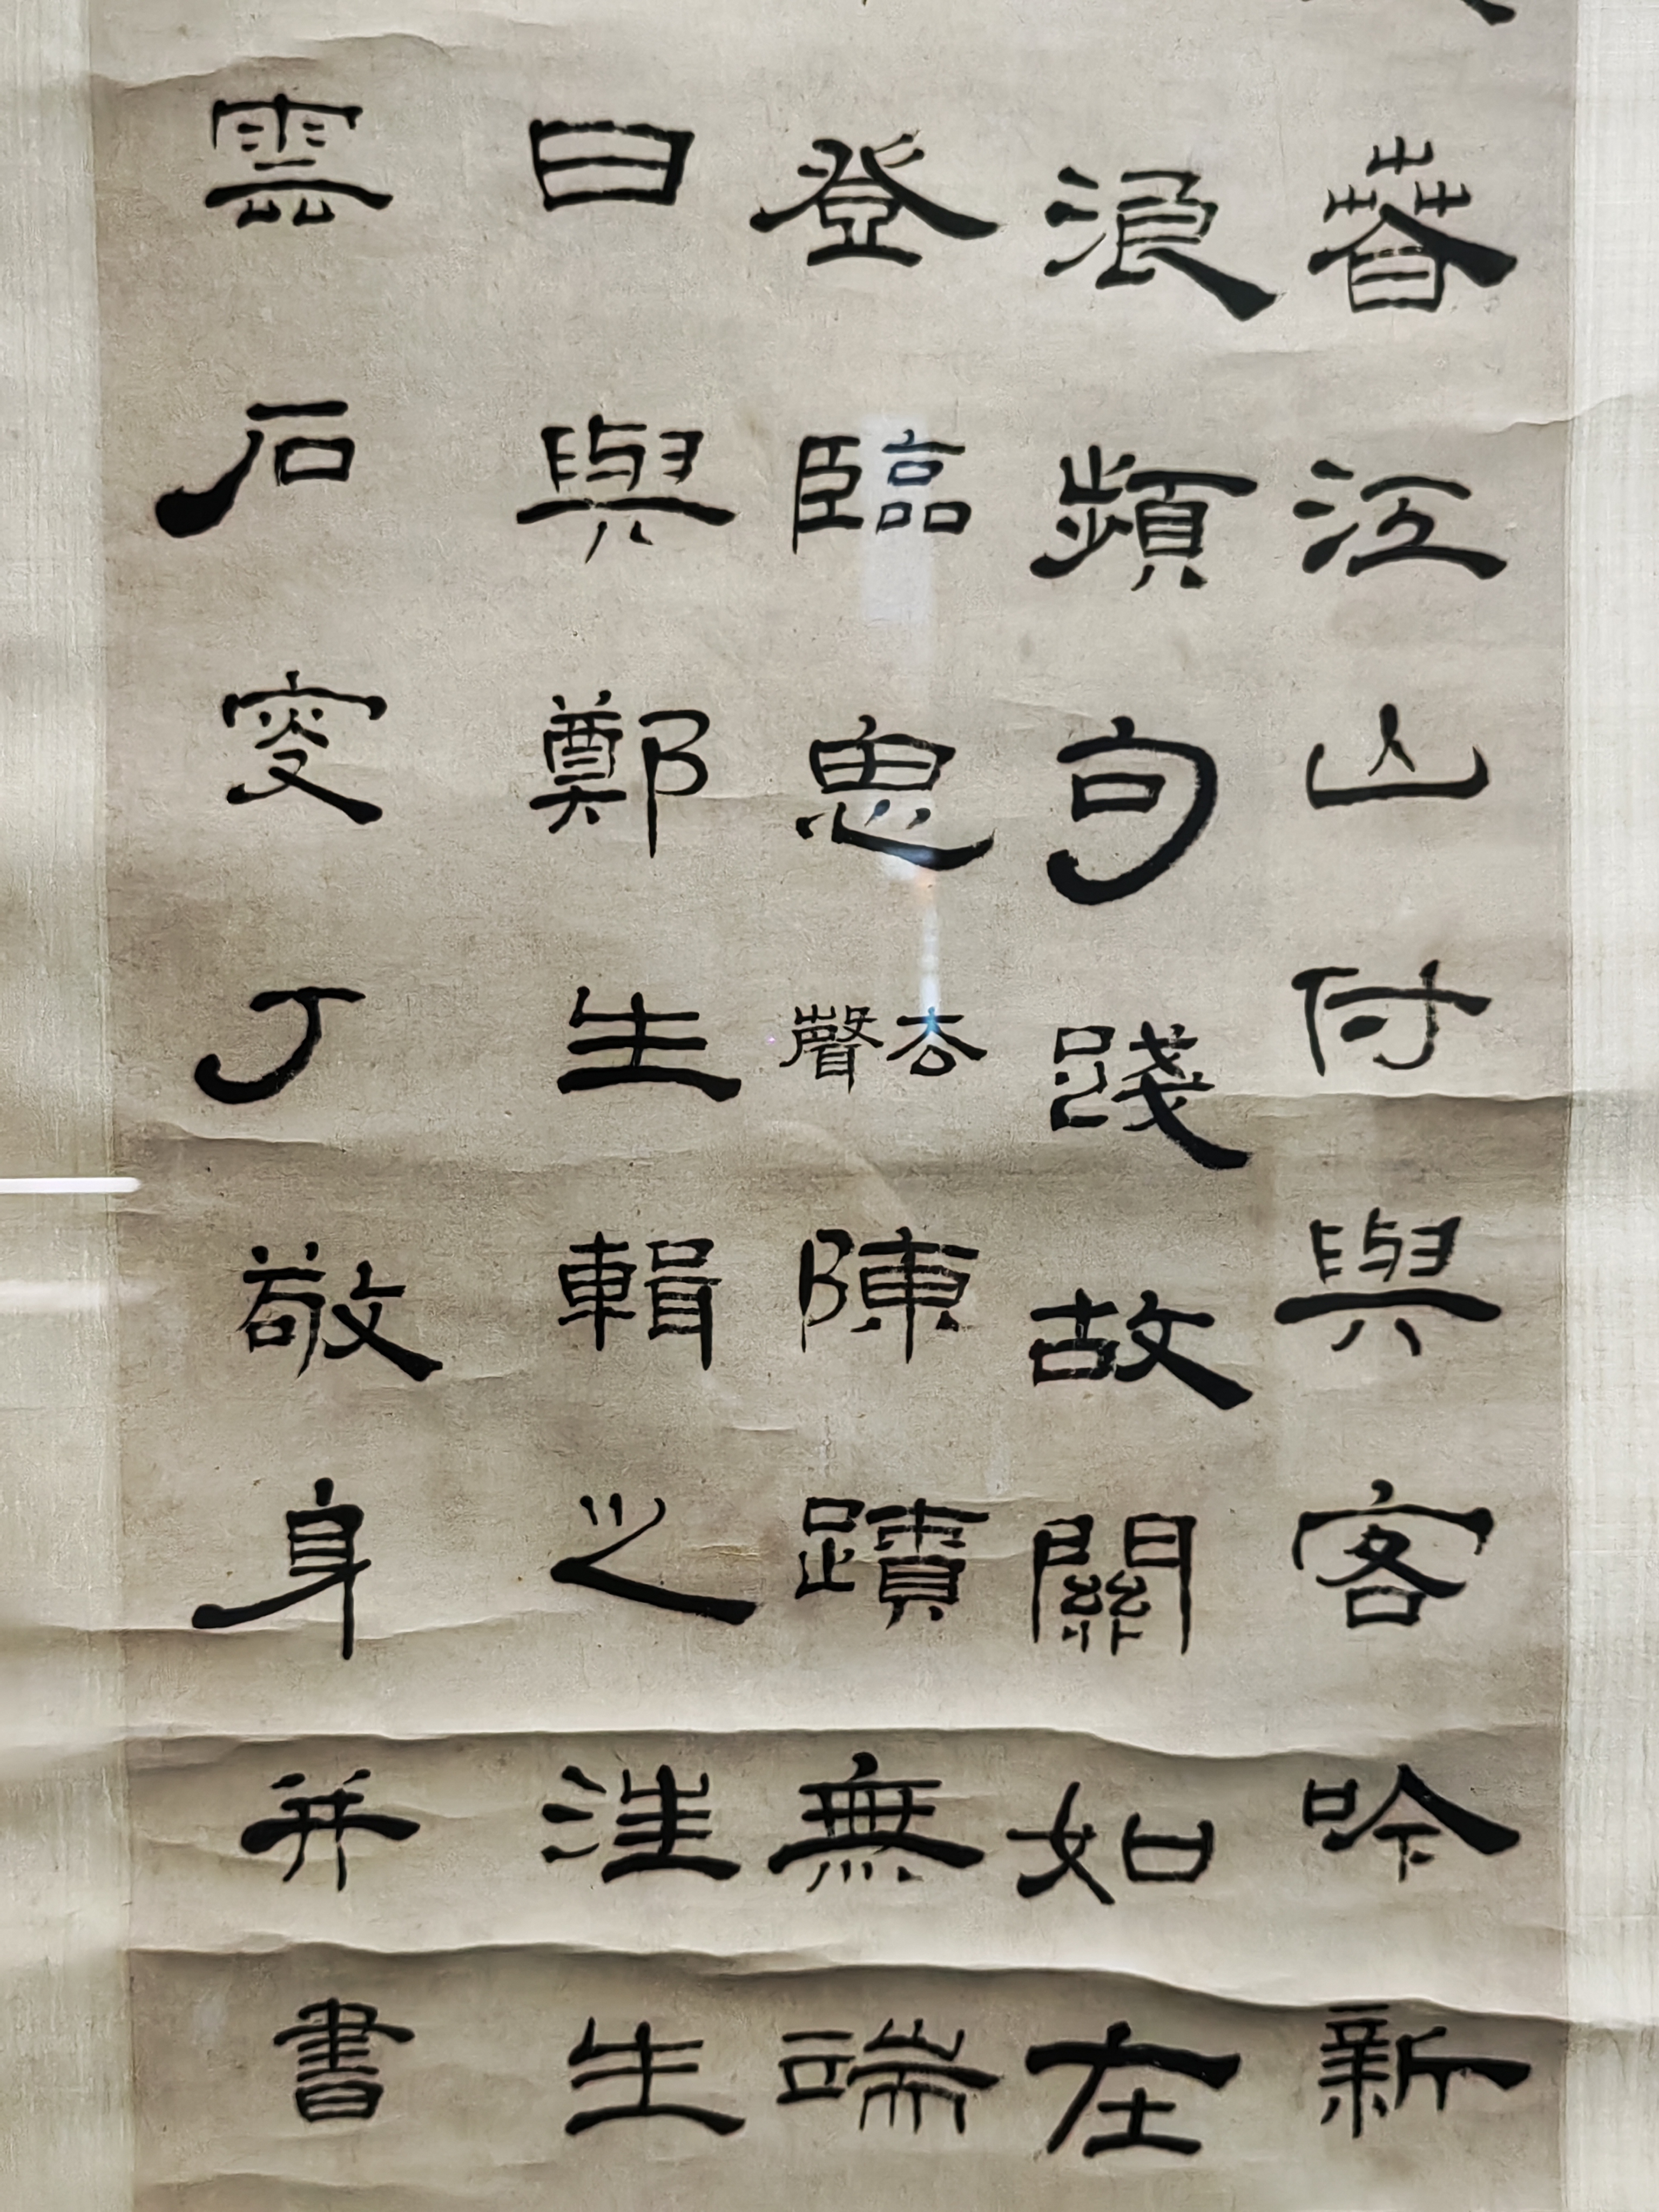 春江山付與客吟新
浪頻句踐故關如在
登臨思去聲陳蹟無端
日與鄭生輯之汪生
雲石叟丁敬身并書